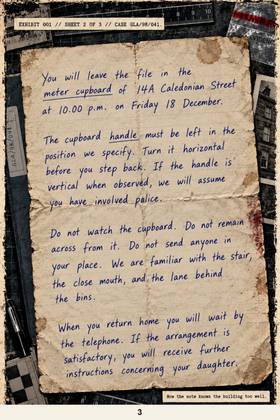 EXHIBIT 001 // SHEET 2 OF 3 // CASE GLA/98/041.
You will leave the file in the
meter cupboard of 14A Caledonian Street
at 10.00 p.m. on Friday 18 December.
The cupboard handle must be left in the
position we specify. Turn it horizontal
before you step back. If the handle is
vertical when observed, we will assume
you have involved police.
Do not watch the cupboard. Do not remain
across from it. Do not send anyone in
your place. We are familiar with the stair,
the close mouth, and the lane behind
the bins.
When you return home you will wait by
the telephone. If the arrangement is
satisfactory, you will receive further
instructions concerning your daughter.
Now the note knows the building too well.
3